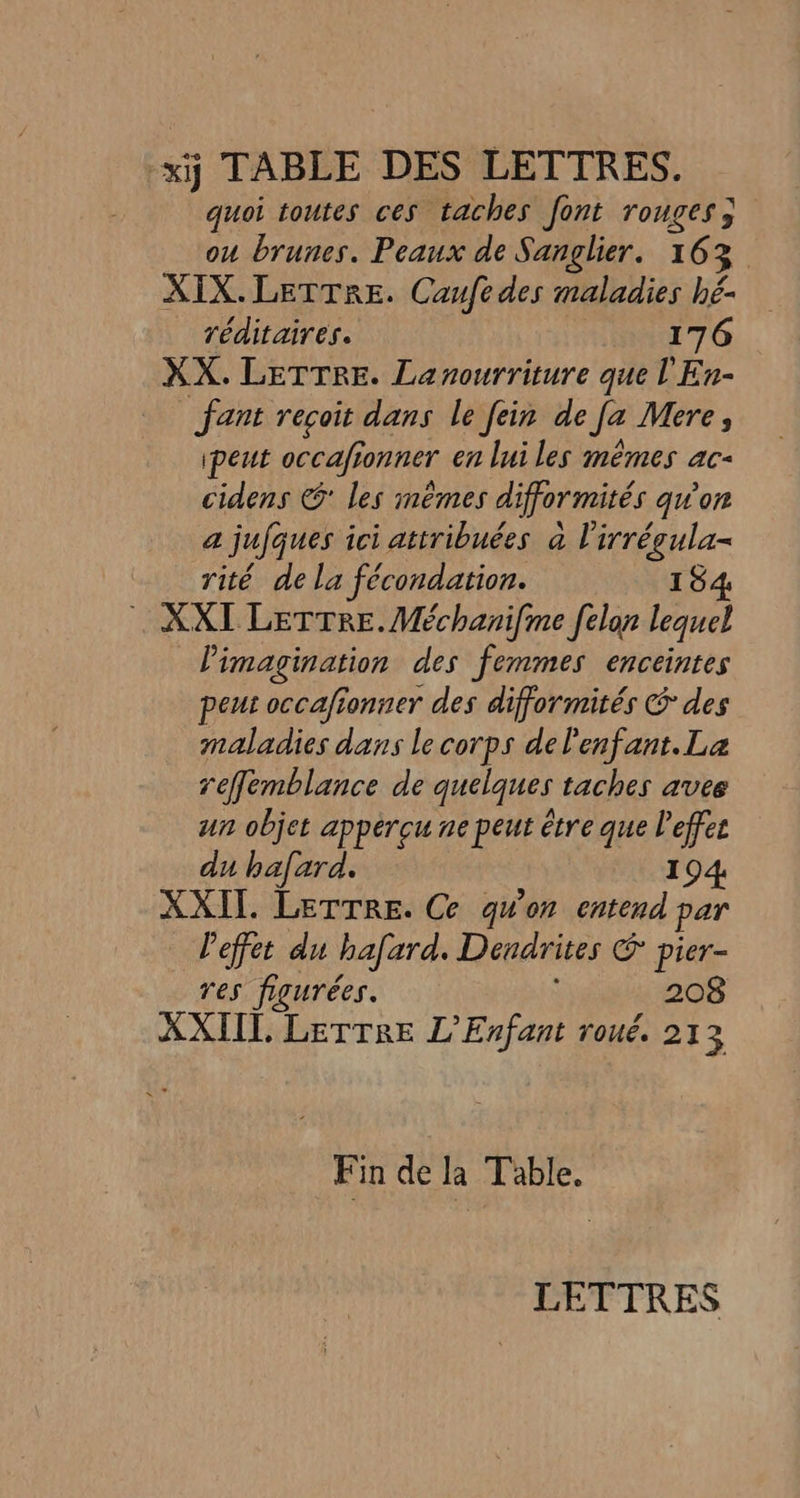 xij TABLE DES LETTRES.
quoi toutes ces taches ſont rouges;
ou brunes. Peaux de Sanglier. 163
XIX. LETTRE. Cauſe des maladies hé-
réditaires. 176
XX. LETTRE. La nourriture que l'En-
fant reçoit dans le ſein de ſa Mere,
peut occaſionner en lui les mêmes ac-
cidens & les mêmes difformités qu'on
a juſques ici attribuées à l'irrégula-
rité de la fécondation. 184
XXI LETTRE. Méchaniſme ſelon lequel
l'imagination des femmes enceintes
peut occaſionner des difformités & des
maladies dans le corps de l'enfant. La
reſſemblance de quelques taches avec
un objet apperçu ne peut être que l'effet
du haſard. 194
XXII. LETTRE. Ce qu'on entend par
l'effet du haſard. Dendrites & pier-
res figurées. 208
XXIII. LETTRE L'Enfant roué. 213
Fin de la Table.
LETTRES